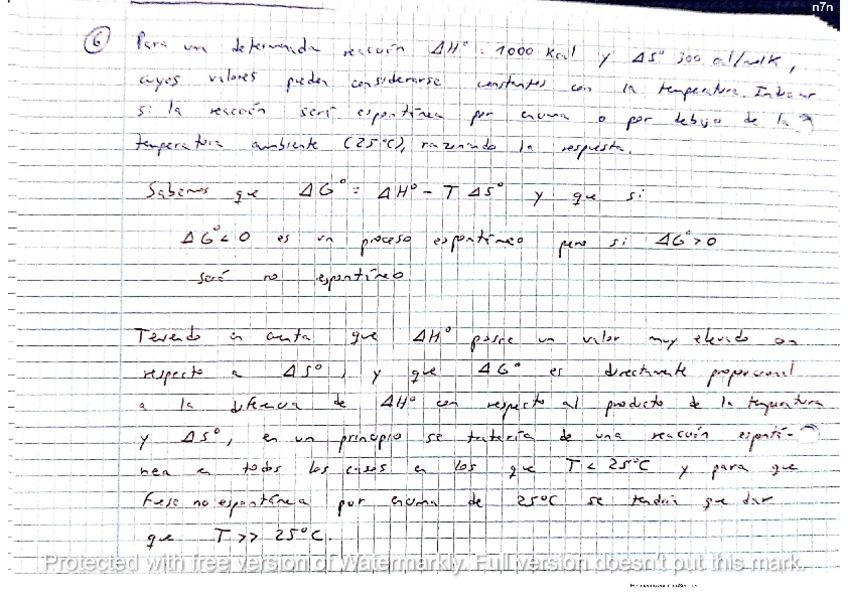 n7n
6 Para una determinada reacción ΔH° = 1000 Kcal y ΔS° 300 cal/molK,
cuyos valores pueden considerarse constantes con la temperatura. Indicar
si la reacción será espontánea por encima o por debajo de la
temperatura ambiente (25°C), razonando la respuesta.
Sabemos que ΔG° = ΔH° - T ΔS° y que si
ΔG° < 0 es un proceso espontáneo pero si ΔG° > 0
será no espontáneo
Teniendo en cuenta que ΔH° posee un valor muy elevado con
respecto a ΔS°, y que ΔG° es directamente proporcional
a la diferencia de ΔH° con respecto al producto de la temperatura
y ΔS°, en un principio se trataría de una reacción espontá-
nea en todos los casos en los que T < 25°C y para que
fuese no espontánea por encima de 25°C se tendría que dar
que T >> 25°C.
Protected with free version of Watermarkly. Full version doesn't put this mark.